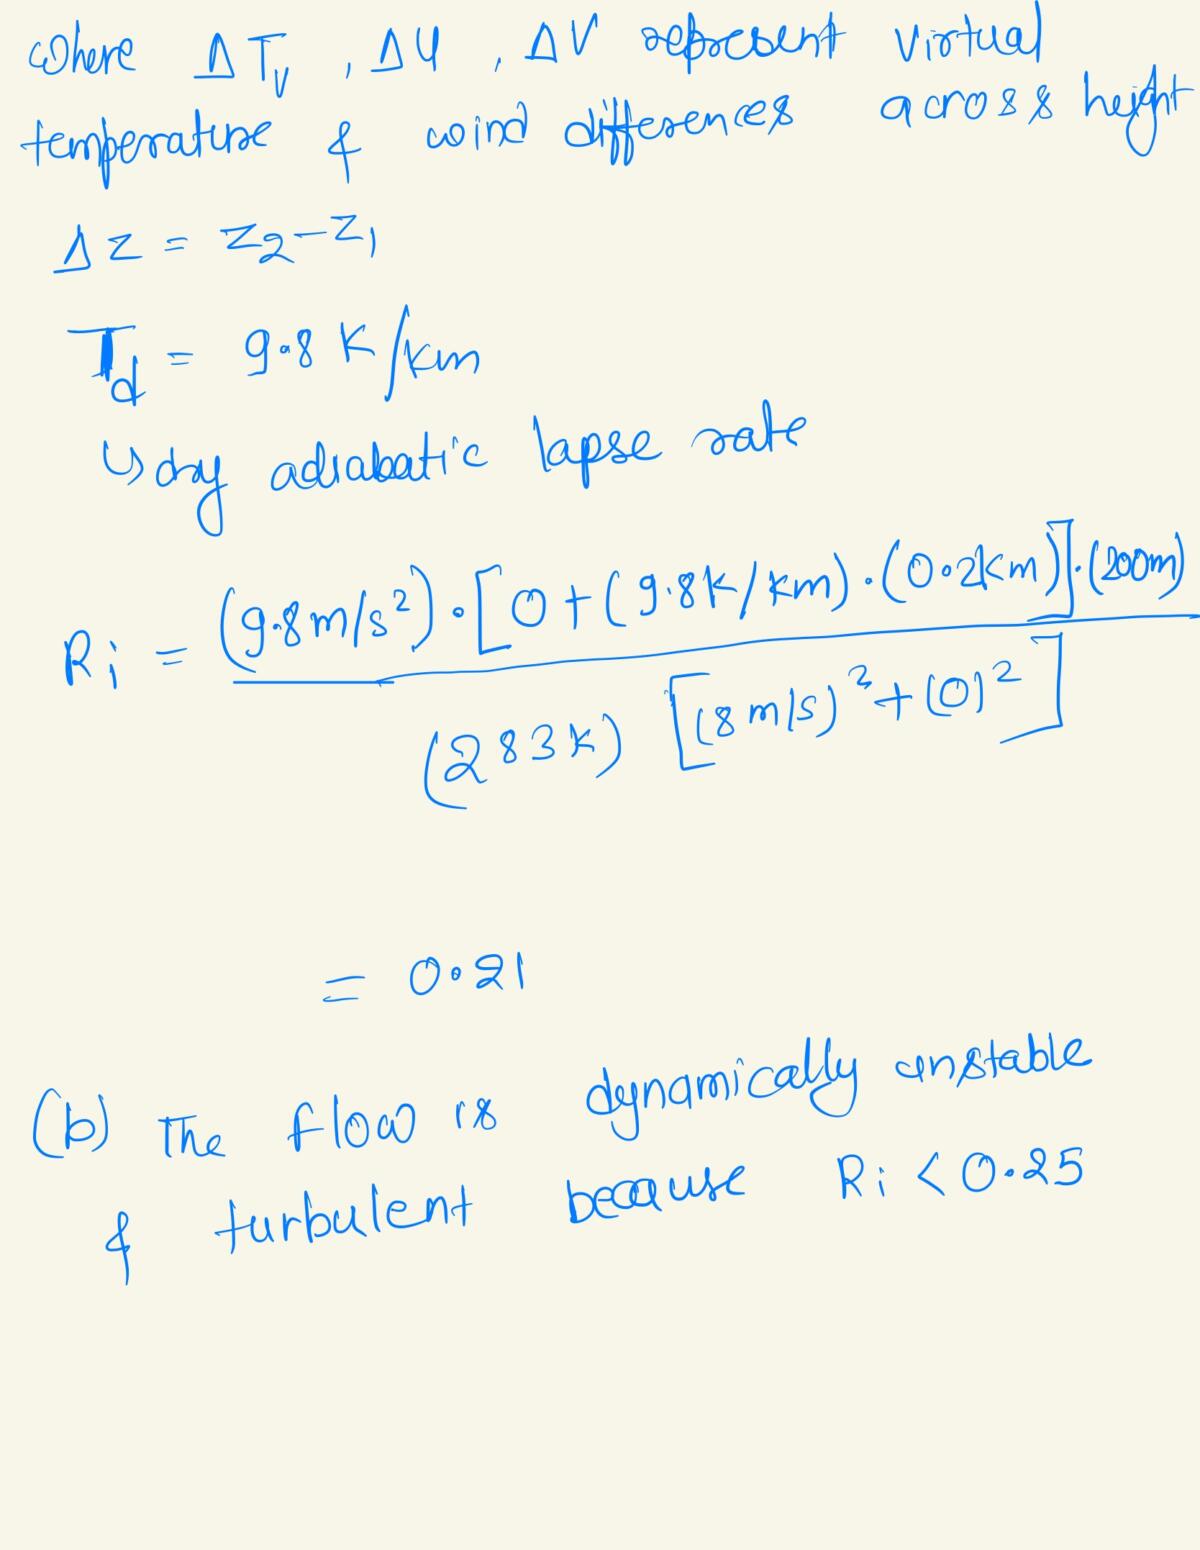 where ΔTv , ΔU , ΔV represent virtual
temperature & wind differences across height
Δz = z2-z1
Td = 9.8 K/km
↳ dry adiabatic lapse rate
Ri = (9.8m/s²)·[0+(9.8K/km)·(0.2km)]·(200m)
(283K) [(8m/s)²+(0)²]
= 0.21
(b) The flow is dynamically unstable
& turbulent because Ri < 0.25